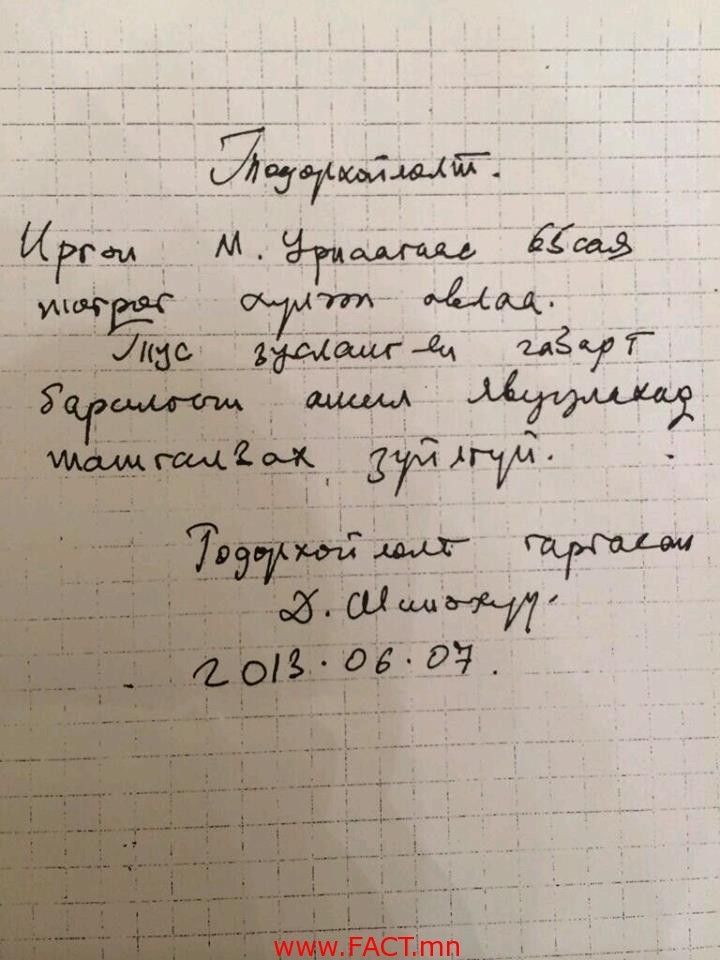 Тодорхойлолт.
Иргэн М. Уриагаас 65сая
төгрөг хүлээн авлаа.
Тус зуслангын газарт
барилгын ажил явуулахад
татгалзах зүйлгүй.
Тодорхойлолт гаргасан
Д.
2013.06.07.
www.FACT.mn